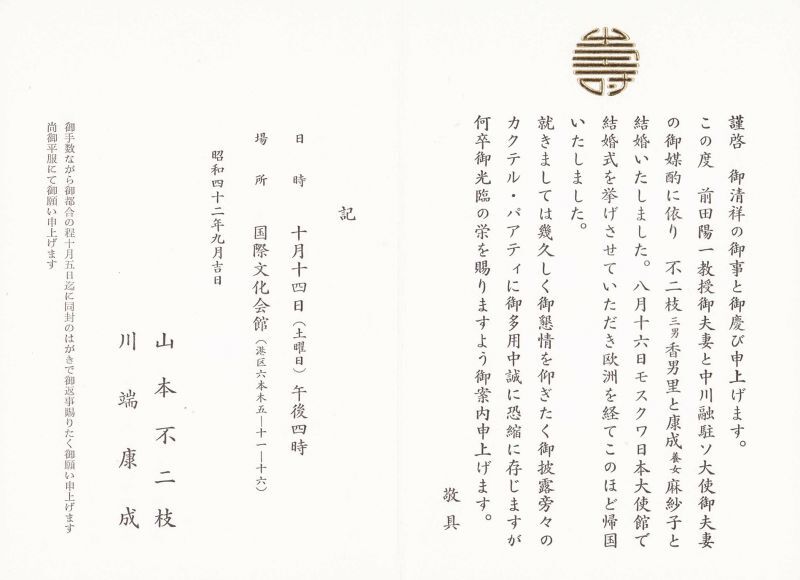 壽
謹啓　御清祥の御事と御慶び申上げます。
この度　前田陽一教授御夫妻と中川融駐ソ大使御夫妻
の御媒酌に依り　不二枝三男香男里と康成養女麻紗子と
結婚いたしました。八月十六日モスクワ日本大使館で
結婚式を挙げさせていただき欧洲を経てこのほど帰国
いたしました。
就きましては幾久しく御懇情を仰ぎたく御披露旁々の
カクテル・パアティに御多用中誠に恐縮に存じますが
何卒御光臨の栄を賜りますよう御案内申上げます。
敬具
記
日時　十月十四日（土曜日）午後四時
場所　国際文化会館（港区六本木五―十一―十六）
昭和四十二年九月吉日
山本不二枝
川端康成
御手数ながら御都合の程十月五日迄に同封のはがきで御返事賜りたく御願い申上げます
尚御平服にて御願い申上げます